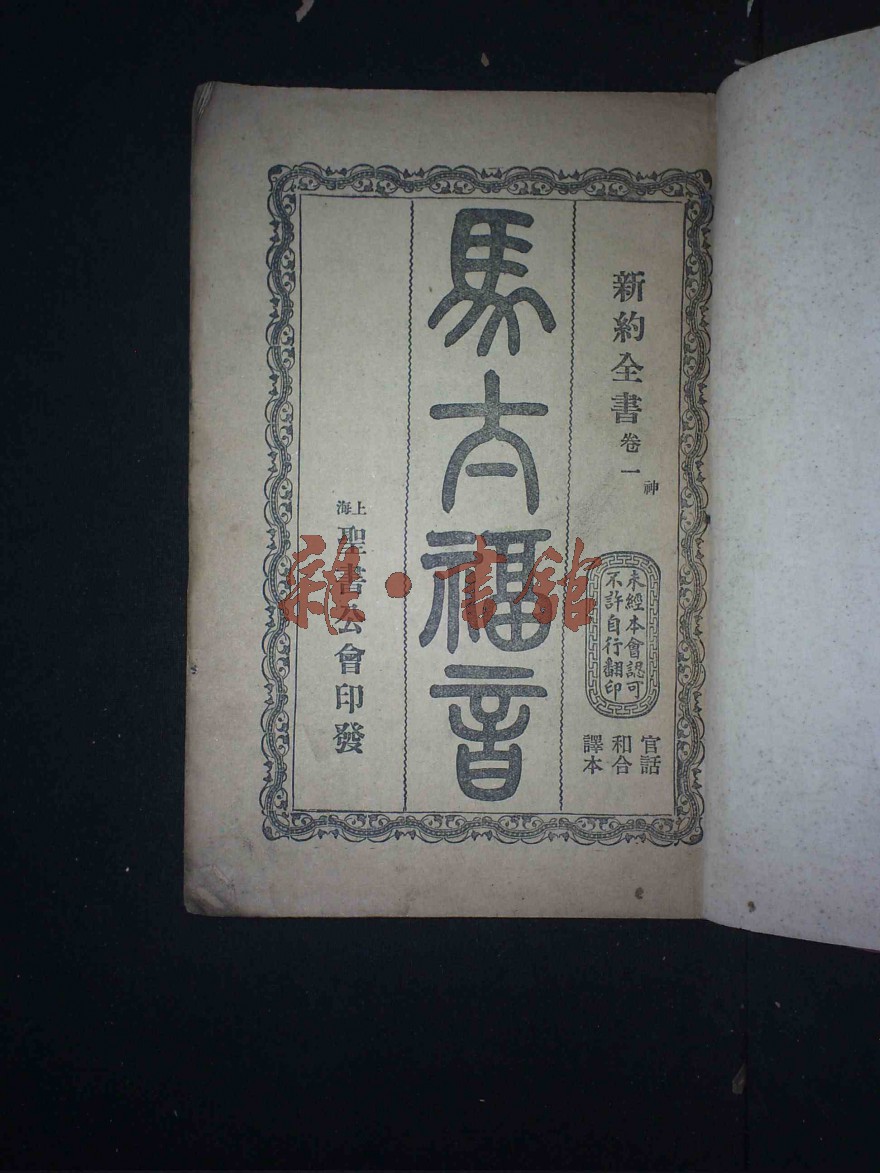 新約全書卷一
神
未經本會認可
不許自行翻印
官話
和合
譯本
馬太福音
上海
聖書公會印發
雜·書館